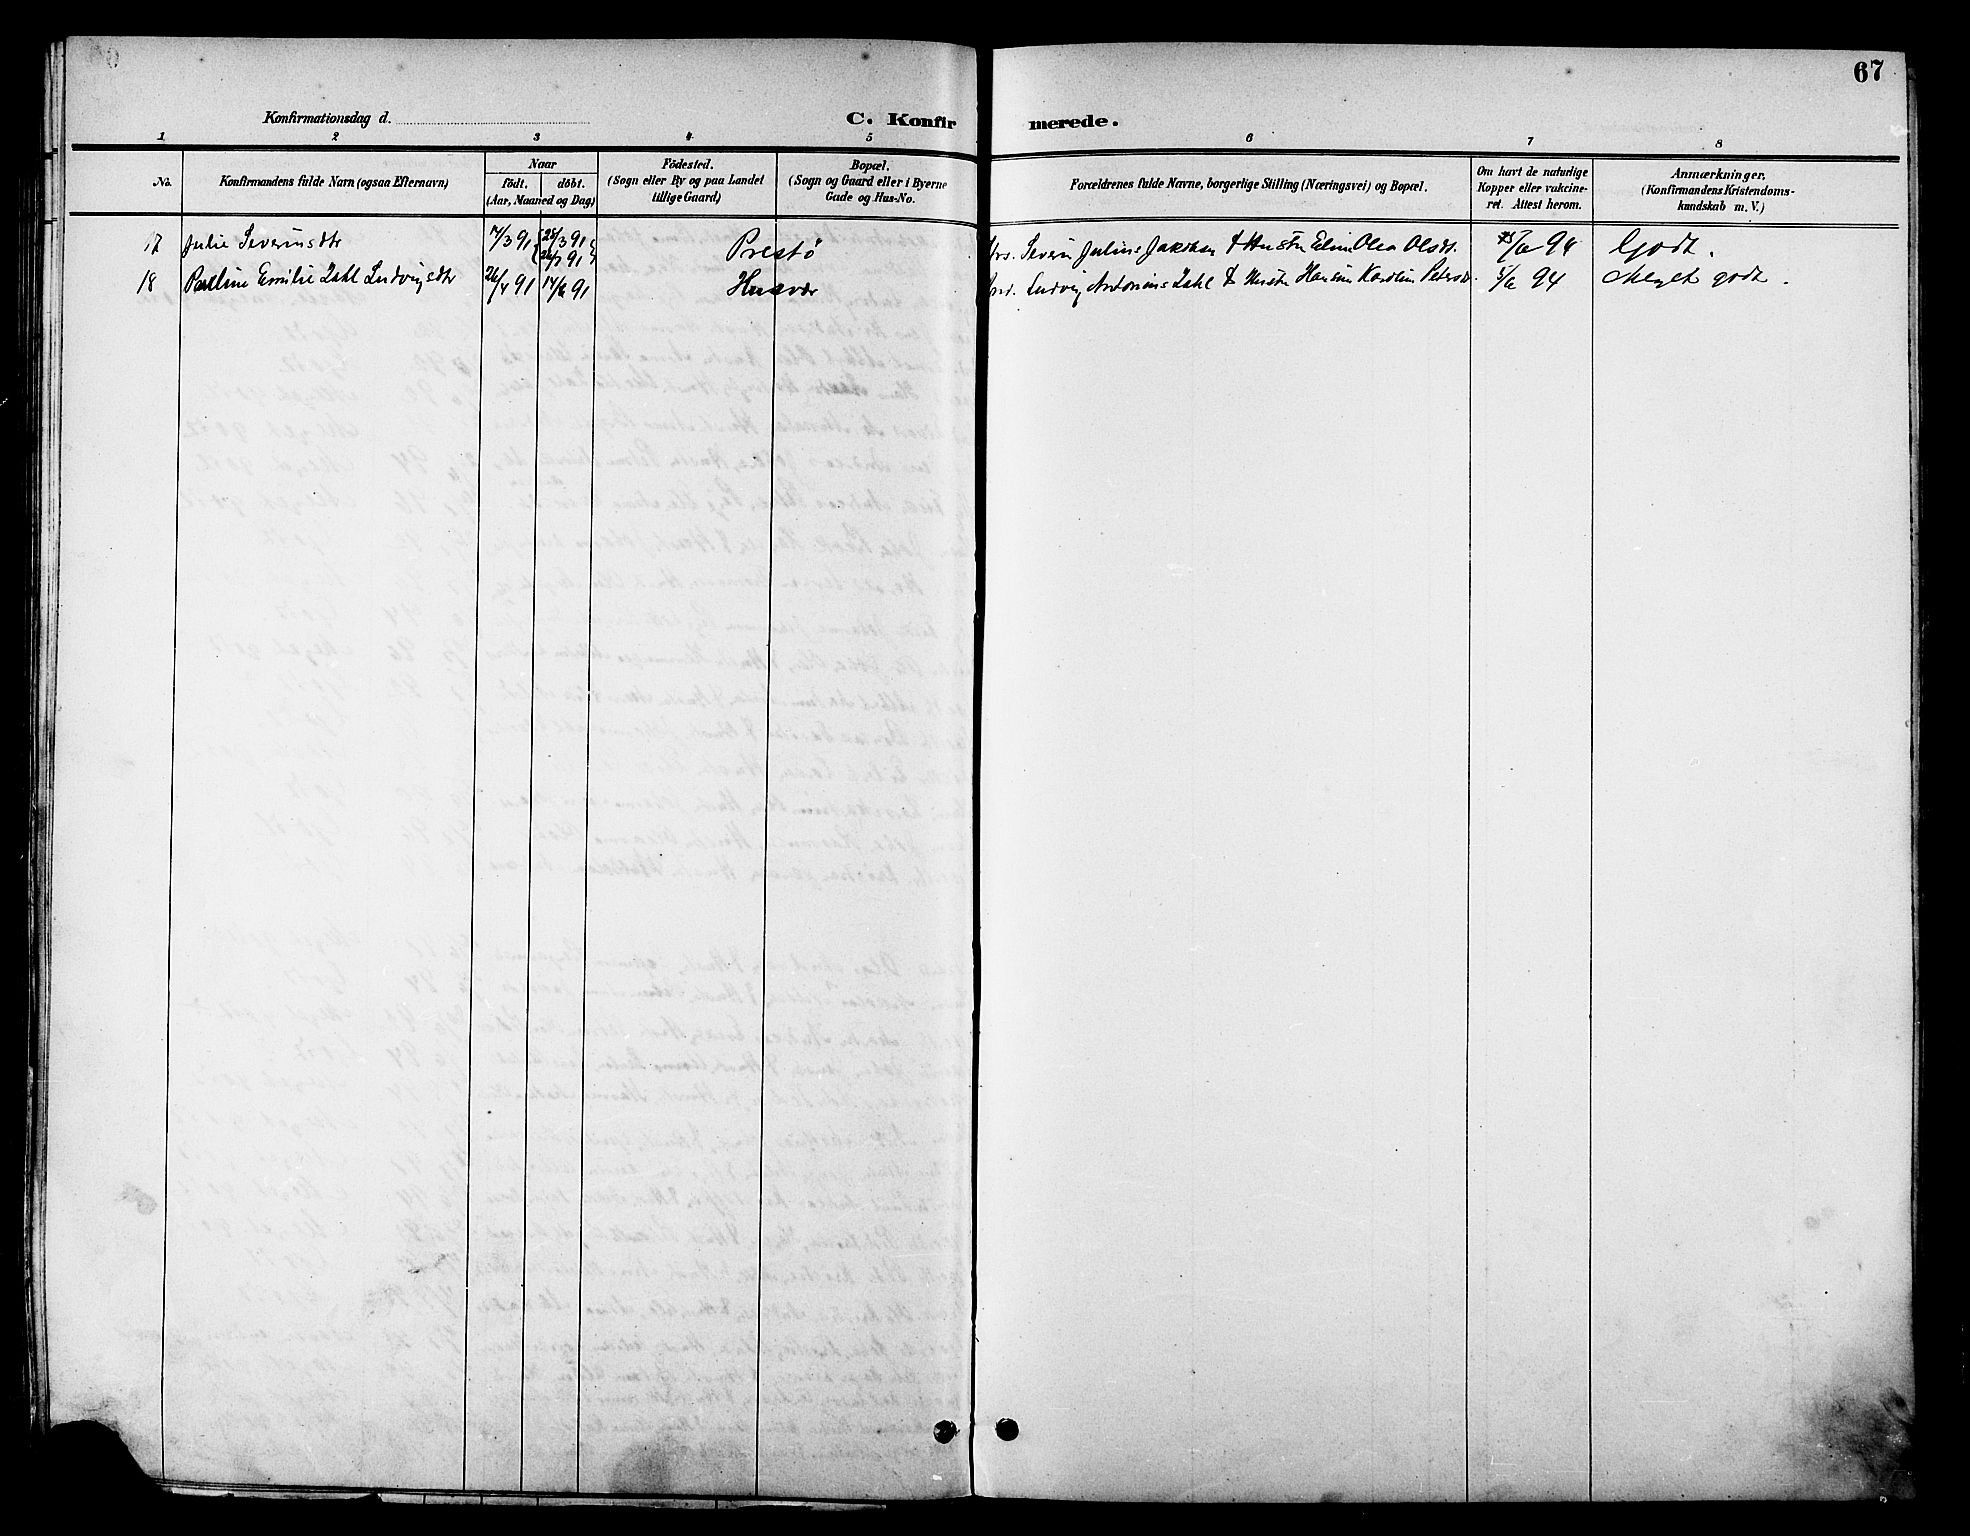 67
Konfirmationsdag d.
C. Konfirmerede.
1 2 3 4 5 6 7 8
No.
Konfirmandens fulde Navn (ogsaa Efternavn)
Naar
födt. döbt.
(Aar, Maaned og Dag)
Födested.
(Sogn eller By og paa Landet
tillige Gaard)
Bopæl.
(Sogn og Gaard eller i Byerne
Gade og Hus-No.
Forældrenes fulde Navne, borgerlige Stilling (Næringsvei) og Bopæl.
Om havt de naturlige
Kopper eller vakcine-
ret. Attest herom.
Anmærkninger.
(Konfirmandens Kristendoms-
kundskab m. V.)
17 Julie Severinsdtr /3 91 25/3 91 Prestö Severin Julius Jakobsen & Hustru Elen Olea Olsdt. /6 94 Godt.
26/7 91
18 Pauline Emilie Zahl Ludvigsdtr 26/4 91 14/6 91 Husvær Ludvig Antonius Zahl & Hustru Hansine Karoline Petersdt. 5/6 94 Meget godt.